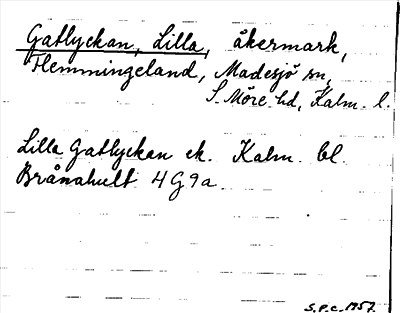 Gatlyckan, Lilla, åkermark,
Flemmingeland, Madesjö sn,
S. Möre hd, Kalm. l.
Lilla Gatlyckan ek. Kalm. bl.
Brånahult 4G9a
S.P.C. 1957.